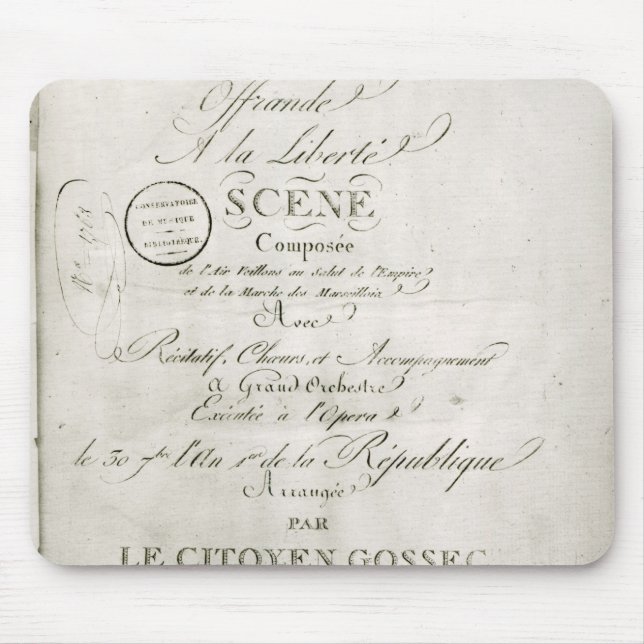 Offrande
A la Liberté
SCENE
Composée
de l'Air Veillons au Salut de l'Empire
et de la Marche des Marseillois
Avec
Récitatif, Chœurs, et Accompagnement
a Grand Orchestre
Exécutée à l'Opera
le 30 7bre l'An 1er de la République
Arrangée
PAR
LE CITOYEN GOSSEC
CONSERVATOIRE
DE MUSIQUE
BIBLIOTHEQUE.